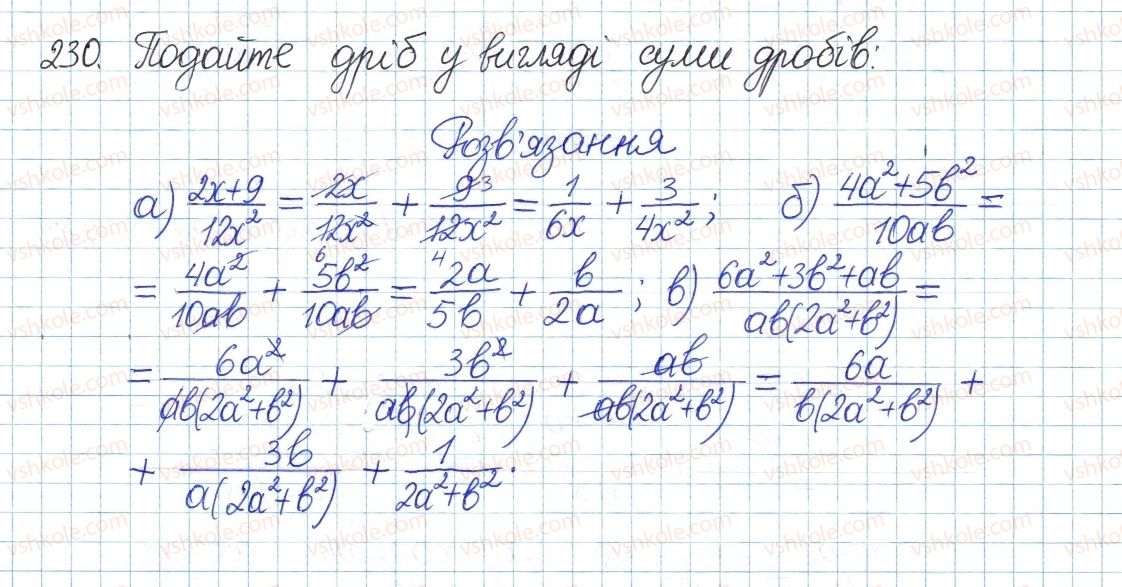 230. Подайте дріб у вигляді суми дробів:
Розв'язання
а) (2x+9)/(12x²) = 2x/(12x²) + 9/(12x²) = 1/(6x) + 3/(4x²); б) (4a²+5b²)/(10ab) =
= 4a²/(10ab) + 5b²/(10ab) = 2a/(5b) + b/(2a); в) (6a²+3b²+ab)/(ab(2a²+b²)) =
= 6a²/(ab(2a²+b²)) + 3b²/(ab(2a²+b²)) + ab/(ab(2a²+b²)) = 6a/(b(2a²+b²)) +
+ 3b/(a(2a²+b²)) + 1/(2a²+b²).